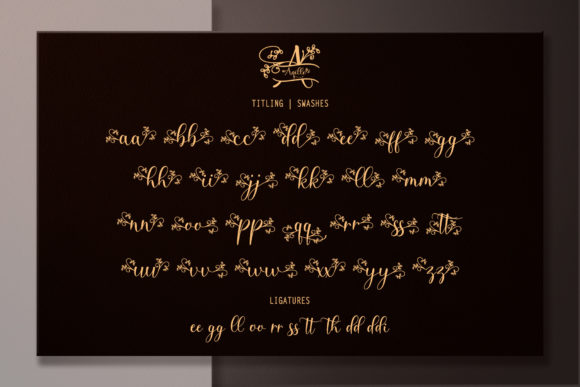 TITLING | SWASHES
aa bb cc dd ee ff gg
hh ii jj kk ll mm
nn oo pp qq rr ss tt
uu vv ww xx yy zz
LIGATURES
ee gg ll oo rr ss tt th dd ddi